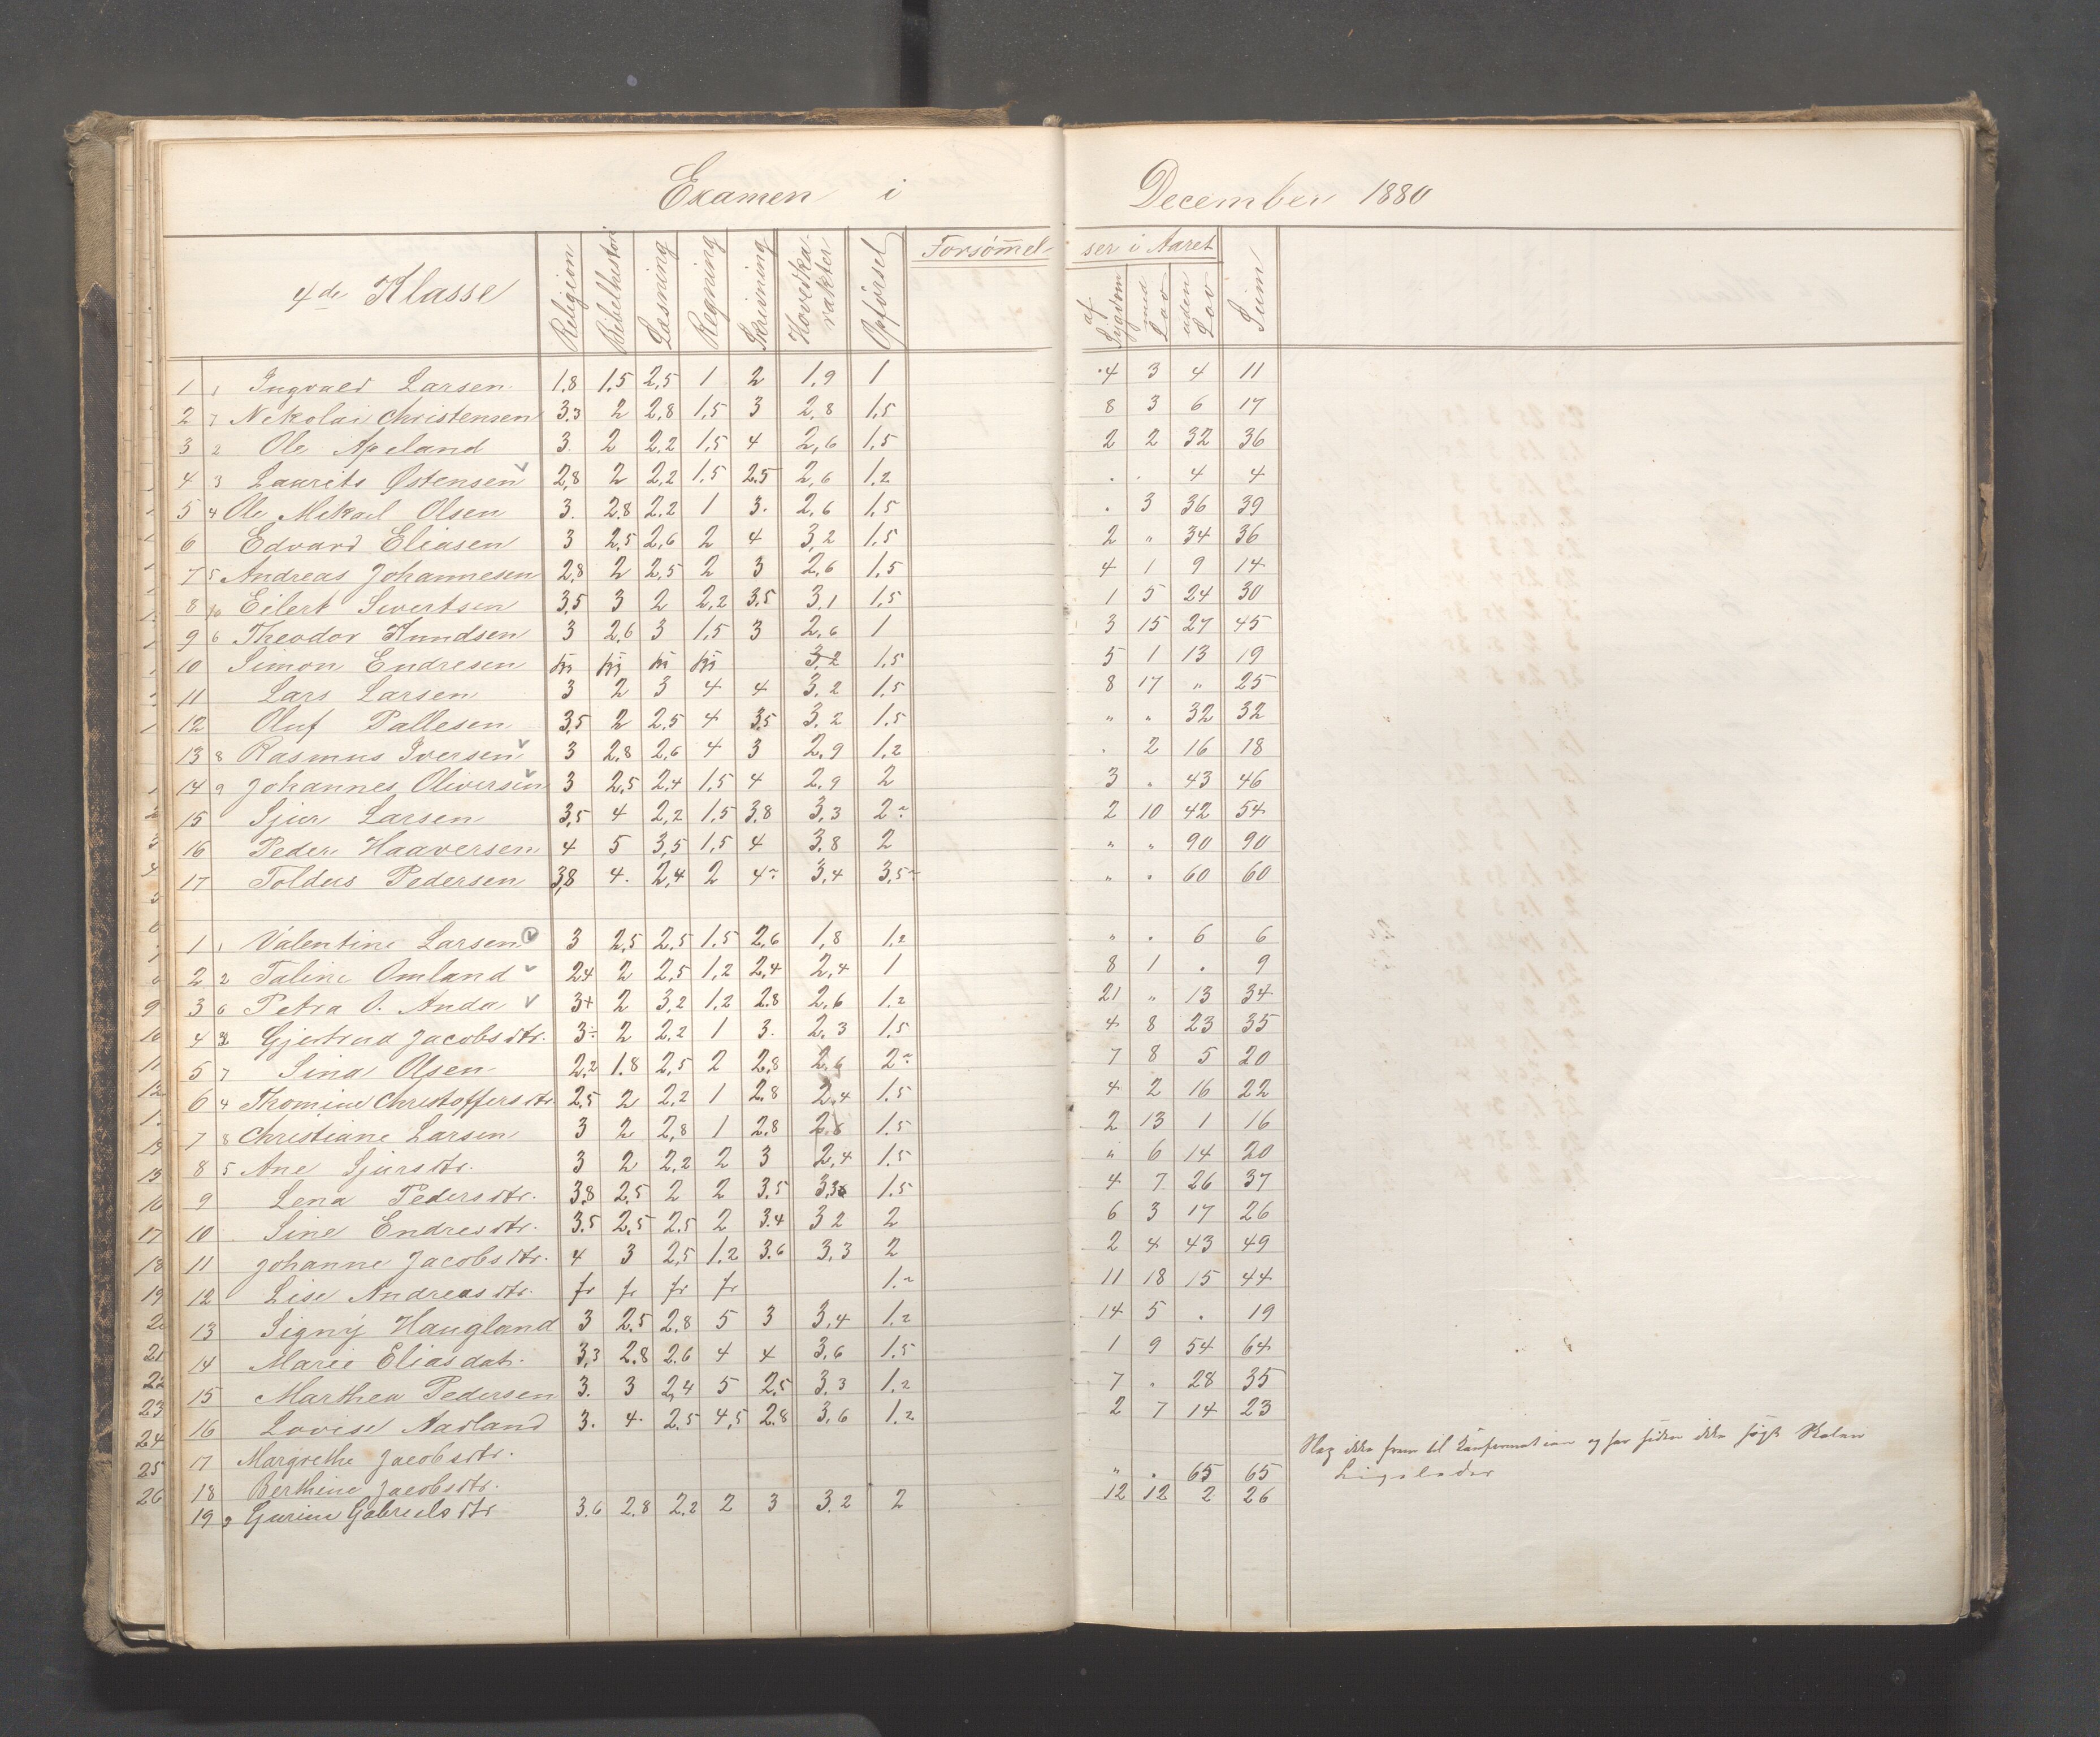 Examen i December 1880
4de Klasse Religion Bibelhistori Læsning Regning Skrivning Hovedkarakter Opførsel Forsømmelser i Aaret af Sygdom med Lov uden Lov Sum
1 1 Ingvald Larsen 1.8 1.5 2,5 1 2 1,9 1 4 3 4 11
2 7 Nekolai Christensen 3.3 2 2,8 1,5 3 2,8 1,5 8 3 6 17
3 2 Ole Apeland 3. 2 2,2 1,5 4 2,6 1,5 2 2 32 36
4 3 Laurits Østensen v 2,8 2 2,2 1,5 2.5 2,6 1,2 . . 4 4
5 4 Ole Mekael Olsen 3. 2.8 2.2 1 3. 2,6 1,5 . 3 36 39
6 Edvard Eliasen 3 2,5 2,6 2 4 3,2 1,5 2 " 34 36
7 5 Andreas Johannesen 2,8 2 2,5 2 3 2,6 1,5 4 1 9 14
8 10 Eilert Sivertsen 3,5 3 2 2,2 3,5 3,1 1,5 1 5 24 30
9 6 Theodor Knudsen 3 2,6 3 1,5 3 2,6 1 3 15 27 45
10 Simon Endresen 3,2 1,5 5 1 13 19
11 Lars Larsen 3 2 3 4 4 3.2 1,5 8 17 " 25
12 Oluf Pallesen 3,5 2 2,5 4 3,5 3,2 1,5 " " 32 32
13 8 Rasmus Iversen v 3 2,8 2,6 4 3 2,9 1,2 . 2 16 18
14 9 Johannes Oliversen v 3 2,5 2,4 1,5 4 2,9 2 3 . 43 46
15 Sjur Larsen 3,5 4 2,2 1,5 3,8 3,3 2÷ 2 10 42 54
16 Peder Haaversen 4 5 3,5 1,5 4 3.8 2 " " 90 90
17 Toldus Pedersen 3,8 4. 2,4 2 4÷ 3,4 3,5÷ " . 60 60
1 1 Valentine Larsen v 3 2,5 2,5 1.5 2,6 1,8 1,2 " . 6 6
2 2 Taline Omland v 2.4 2 2,5 1,2 2,4 2,4 1 8 1 . 9
3 6 Petra O. Anda v 3+ 2 3,2 1,2 2.8 2,6 1.2 21 " 13 34
4 3 Gjertrud Jacobsdtr. 3÷ 2 2,2 1 3. 2,3 1.5 4 8 23 35
5 7 Sina Olsen 2,2 1.8 2,5 2 2,8 2,6 2÷ 7 8 5 20
6 4 Thomine Christoffersdtr. 2,5 2 2,2 1 2.8 2,4 1.5 4 2 16 22
7 8 Christiane Larsen 3 2 2,8 1 2.8 2.8 1.5 2 13 1 16
8 5 Ane Sjursdtr. 3 2 2,2 2 3 2,4 1.5 " 6 14 20
9 Lena Pedersdtr. 3.8 2.5 2 2 3.5 3,3 1.5 4 7 26 37
10 Sine Endresdtr. 3.5 2,5 2.5 2 3.4 3 2 2 6 3 17 26
11 Johanne Jacobsdtr. 4 3 2,5 1.2 3.6 3,3 2 2 4 43 49
12 Lise Andreasdtr. fr fr fr fr 1.÷ 11 18 15 44
13 Signy Haugland 3 2.5 2.8 5 3 3,4 1.2 14 5 . 19
14 Marie Eliasdat. 3,3 2.8 2.6 4 4 3,6 1.5 1 9 54 64
15 Marthea Pedersen 3. 3 2,4 5 2,5 3.3 1.2 7 . 28 35
16 Lovise Aadland 3. 4. 2.5 4,5 2.8 3,6 1.2 2 7 14 23
17 Margrethe Jacobsdtr. Slag ikke frem til Konfermation og har siden ikke søgt Skolen
18 Berthine Jacobsdtr. " . 65 65 Ligeledes
19 9 Gurine Gabrielsdtr 3.6 2.8 2.2 2 3 3.2 2 12 12 2 26